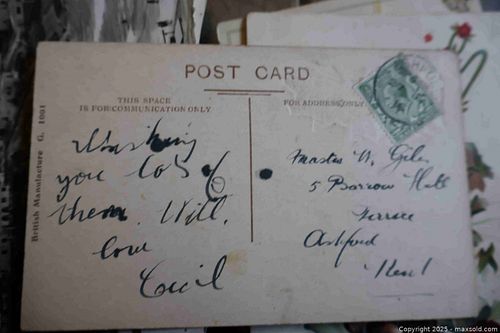 POST CARD
THIS SPACE
IS FOR COMMUNICATION ONLY.
FOR ADDRESS ONLY
British Manufacture G. 1001
Wishing
you lots of
them. Will.
love
Cecil
Master W. Giles
5 Barrow Hill
Terrace
Ashford
Kent
Copyright 2025 - maxsold.com